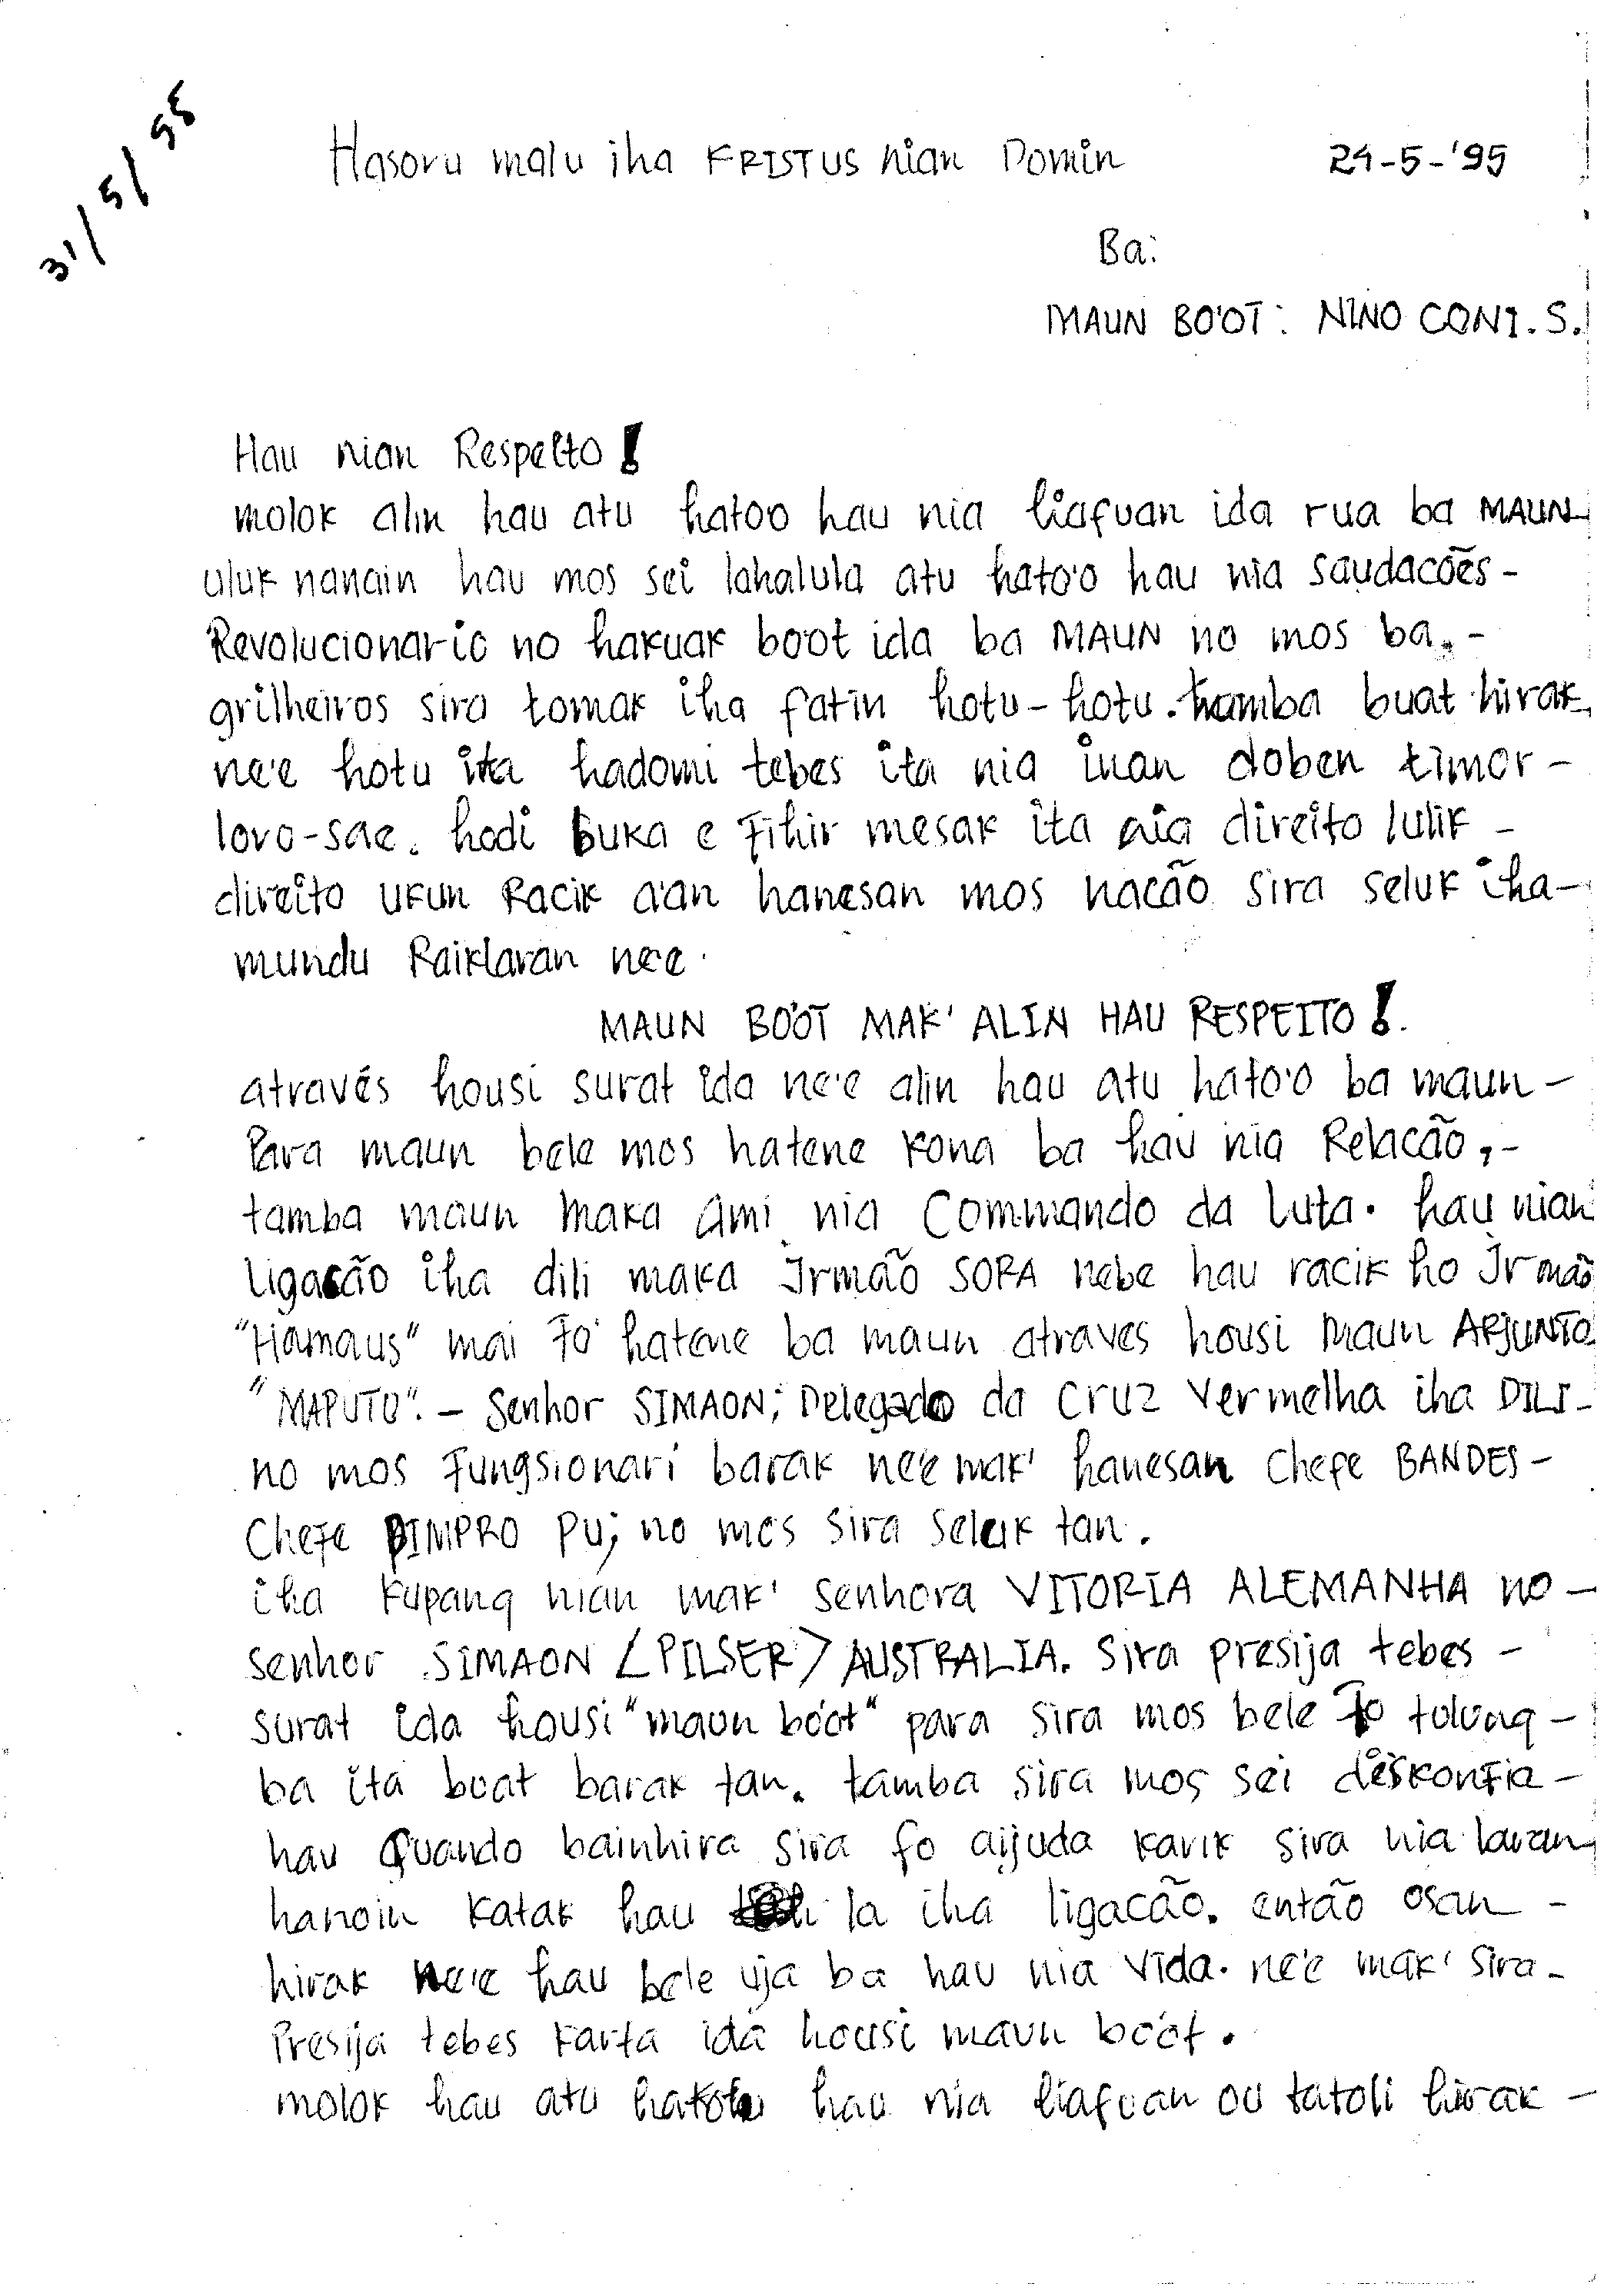 31/5/95
Hasoru malu iha KRISTUS nian Domin 24-5-'95
Ba:
MAUN BO'OT: NINO CONI.S.
Hau nian Respeito!
molok alin hau atu hatoo hau nia liafuan ida rua ba MAUN
uluk nanain hau mos sei lahalula atu hato'o hau nia saudacões -
Revolucionario no hakuak boot ida ba MAUN no mos ba. -
grilheiros sira tomak iha fatin hotu-hotu. hamba buat hirak
ne'e hotu ita hadomi tebes ita nia inan doben timor -
loro-sae. hodi buka e Fihir mesak ita nia direito lulik -
direito ukun Racik a'an hanesan mos nacão sira seluk iha -
mundu Raiklaran ne'e.
MAUN BO'OT MAK' ALIN HAU RESPEITO!.
através housi surat ida ne'e alin hau atu hato'o ba maun -
Para maun bele mos hatene kona ba hau nia Relacão, -
tamba maun maka ami nia Commando da luta. hau nian
ligacão iha dili maka Irmão SORA nebe hau racik ho Irmão
"Hamaus" mai Fo' hatene ba maun atraves housi maun ARJUNTO
"MAPUTO". - Senhor SIMAON; Delegado da Cruz Vermelha iha DILI -
no mos Fungsionari barak ne'e mak' hanesan Chefe BANDES -
Chefe PIMPRO PU; no mos sira seluk tan.
iha Kupang nian mak' senhora VITORIA ALEMANHA no -
senhor SIMAON <PILSER> AUSTRALIA. Sira presija tebes -
surat ida housi "maun bo'ot" para sira mos bele Fo tolong -
ba ita buat barak tan. tamba sira mos sei diskonfia -
hau Quando bainhira sira fo aijuda karik sira nia laran
hanoin katak hau la iha ligacão. então osan -
hirak ne'e hau bele uja ba hau nia vida. ne'e mak' sira -
Presija tebes karta ida housi maun bo'ot.
molok hau atu hau nia liafuan ou tatoli hirak -